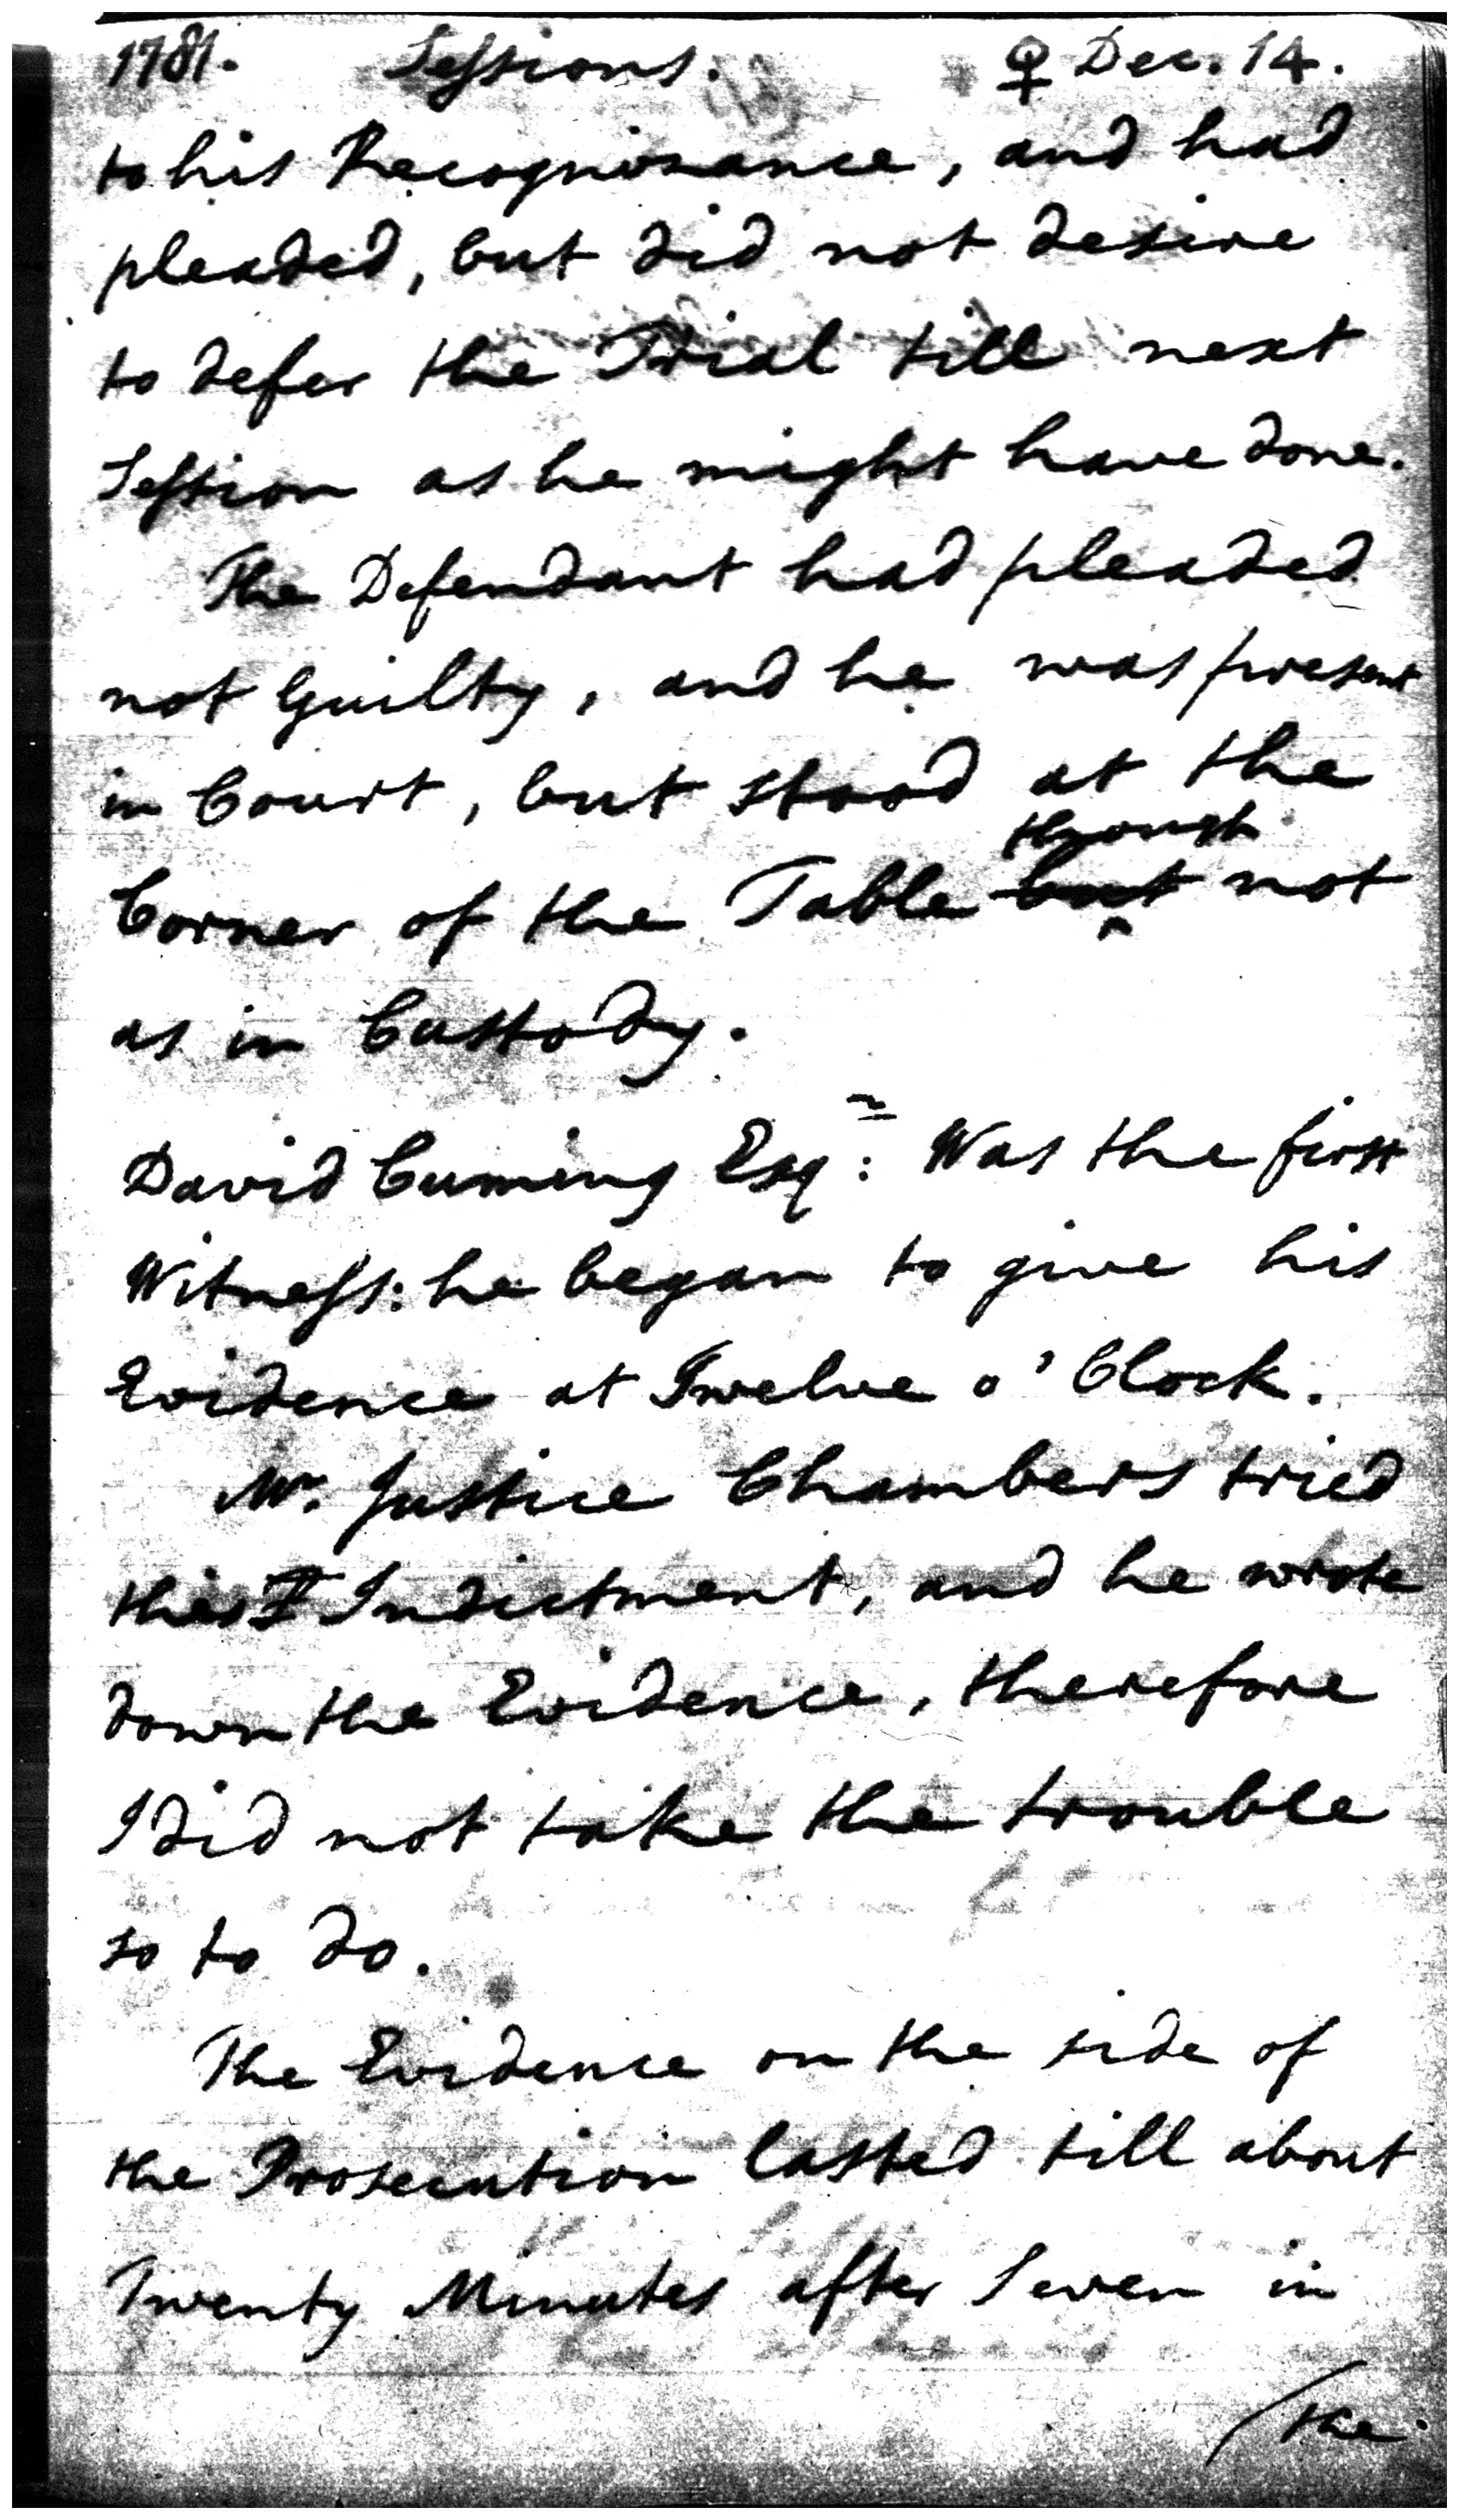 1781. Sessions. ♀ Dec. 14.
to his Recognisance, and had
pleaded, but did not desire
to defer the Trial till next
Session as he might have done.
The Defendant had pleaded
not Guilty, and he was present
in Court, but stood at the
though
Corner of the Table but not
as in Custody.
David Cuming Esq: Was the first
Witness: he began to give his
Evidence at Twelve o'Clock.
Mr. Justice Chambers tried
this Indictment, and he wrote
down the Evidence, therefore
I did not take the trouble
so to do.
The Evidence on the side of
the Prosecution lasted till about
Twenty Minutes after Seven in
/the